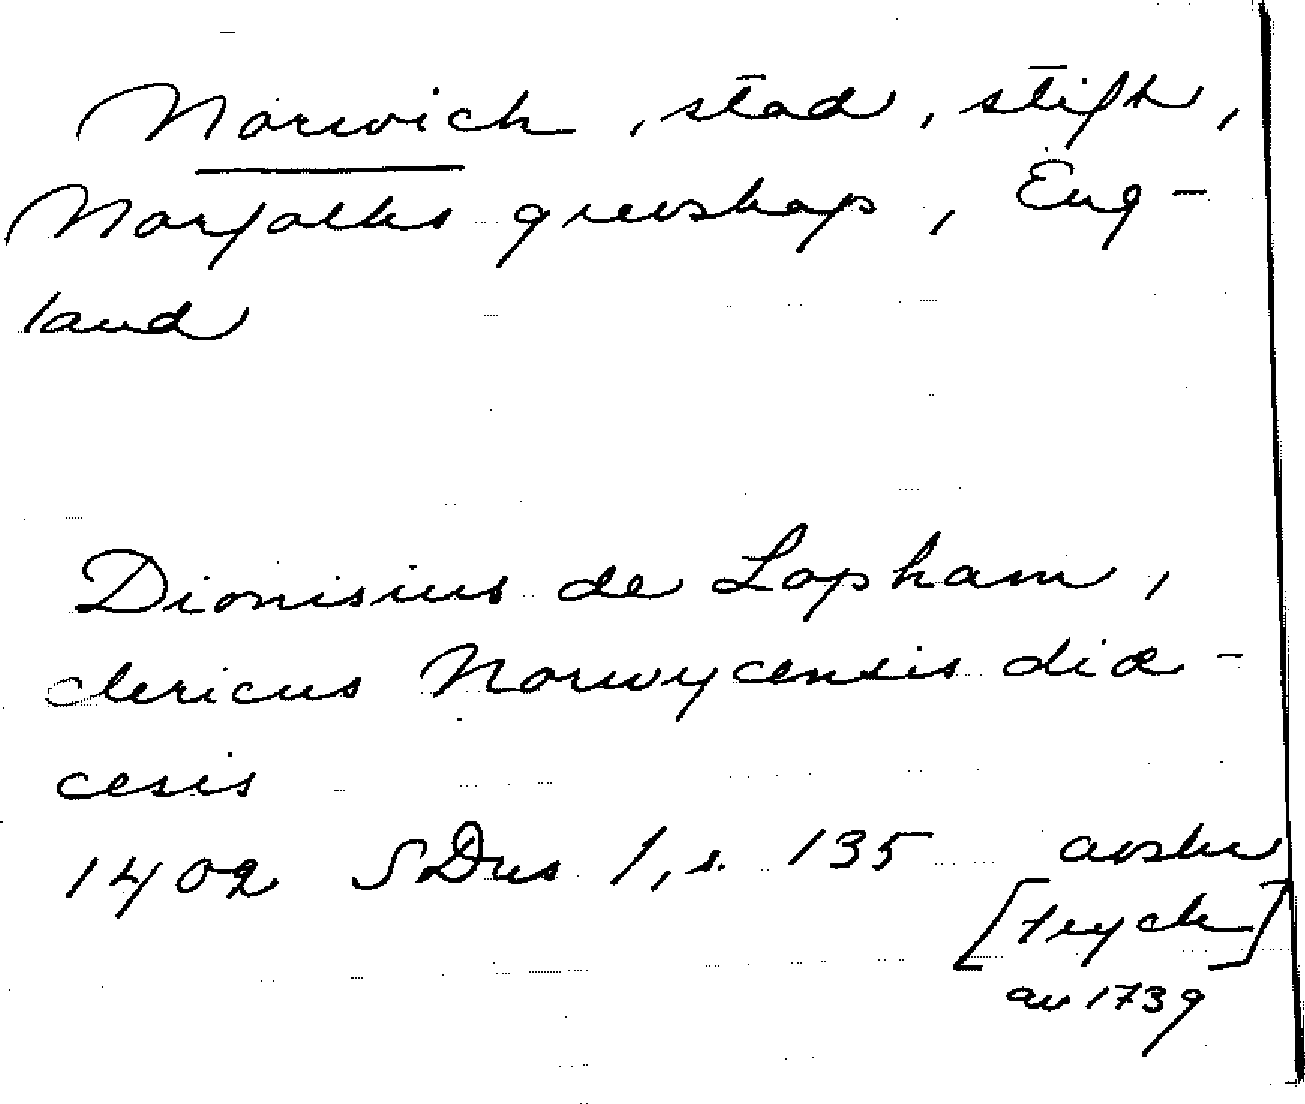 Norwich, stad, stift,
Norfolks grevskap, Eng-
land
Dionisius de Lopham,
clericus Norwycensis diœ-
cesis
1402 SDns 1, s. 135 avskr
[tryck]
av 1739